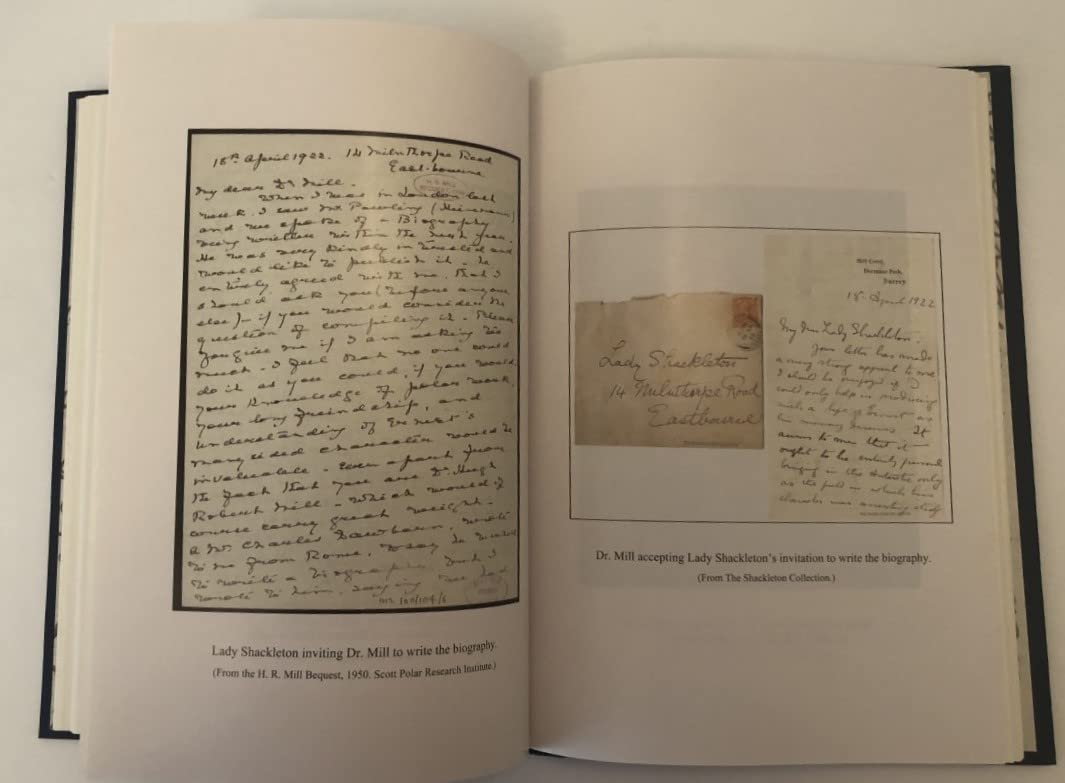 18th April 1922. 14 Milnthorpe Road
Eastbourne
My dear Dr. Mill.
When I was in London last
week I saw Mr Pawling (Heinemann)
and we spoke of a Biography
being written within the next year.
He was very kindly interested and
would like to publish it. He
entirely agreed with me, that I
should ask you (before anyone
else) – if you would consider the
question of compiling it. Please
forgive me if I am asking too
much. I feel that no one could
do it as you could, if you would.
your knowledge of polar work,
your long friendship, and
understanding of Ernest's
many sided character would be
invaluable – even apart from
the fact that you are Dr. Hugh
Robert Mill – which would of
course carry great weight.
A Mr Charles Dawbarn, wrote
to me from Rome,
to write a biography but I
wrote to him, saying we had
H. R. MILL
MS 100/104/6
Lady Shackleton inviting Dr. Mill to write the biography.
(From the H. R. Mill Bequest, 1950. Scott Polar Research Institute.)
Lady Shackleton
14 Milnthorpe Road
Eastbourne
Hill Crest,
Dorman's Park,
Surrey.
18. April 1922
My dear Lady Shackleton.
Your letter has made
a very strong appeal to me
I should be overjoyed if I
could only help in producing
such a life of Ernest as
his memory deserves. It
seems to me that it
ought to be entirely personal
bringing in the Antarctic only
as the field in which his
character was
Dr. Mill accepting Lady Shackleton's invitation to write the biography.
(From The Shackleton Collection.)